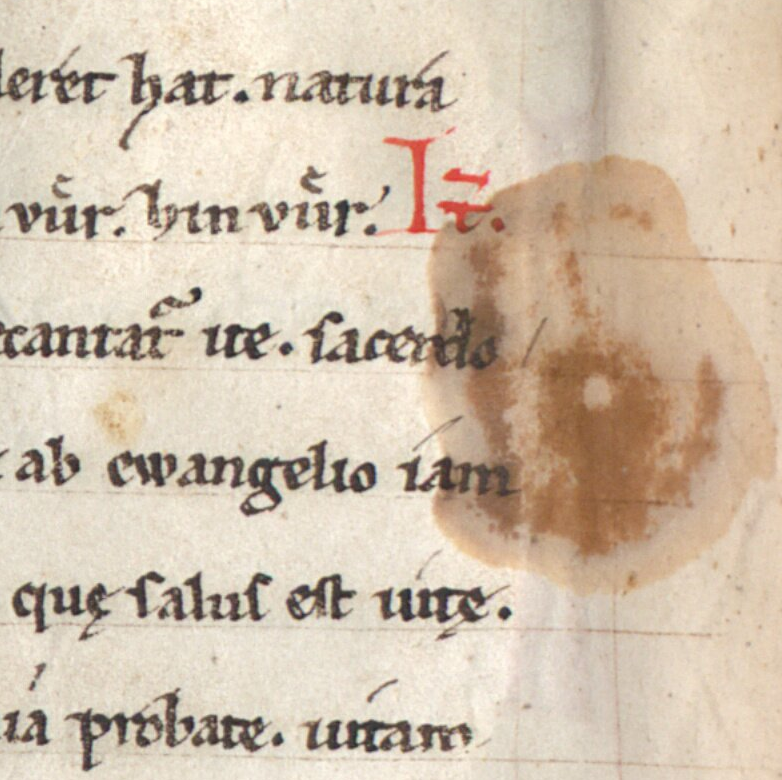 deret hat. natura
vūr. hin vūr. It̄.
cantar̃ ite. sacerdo
ab ewangelio iam
quę salus est uitę.
ia probate. uitam